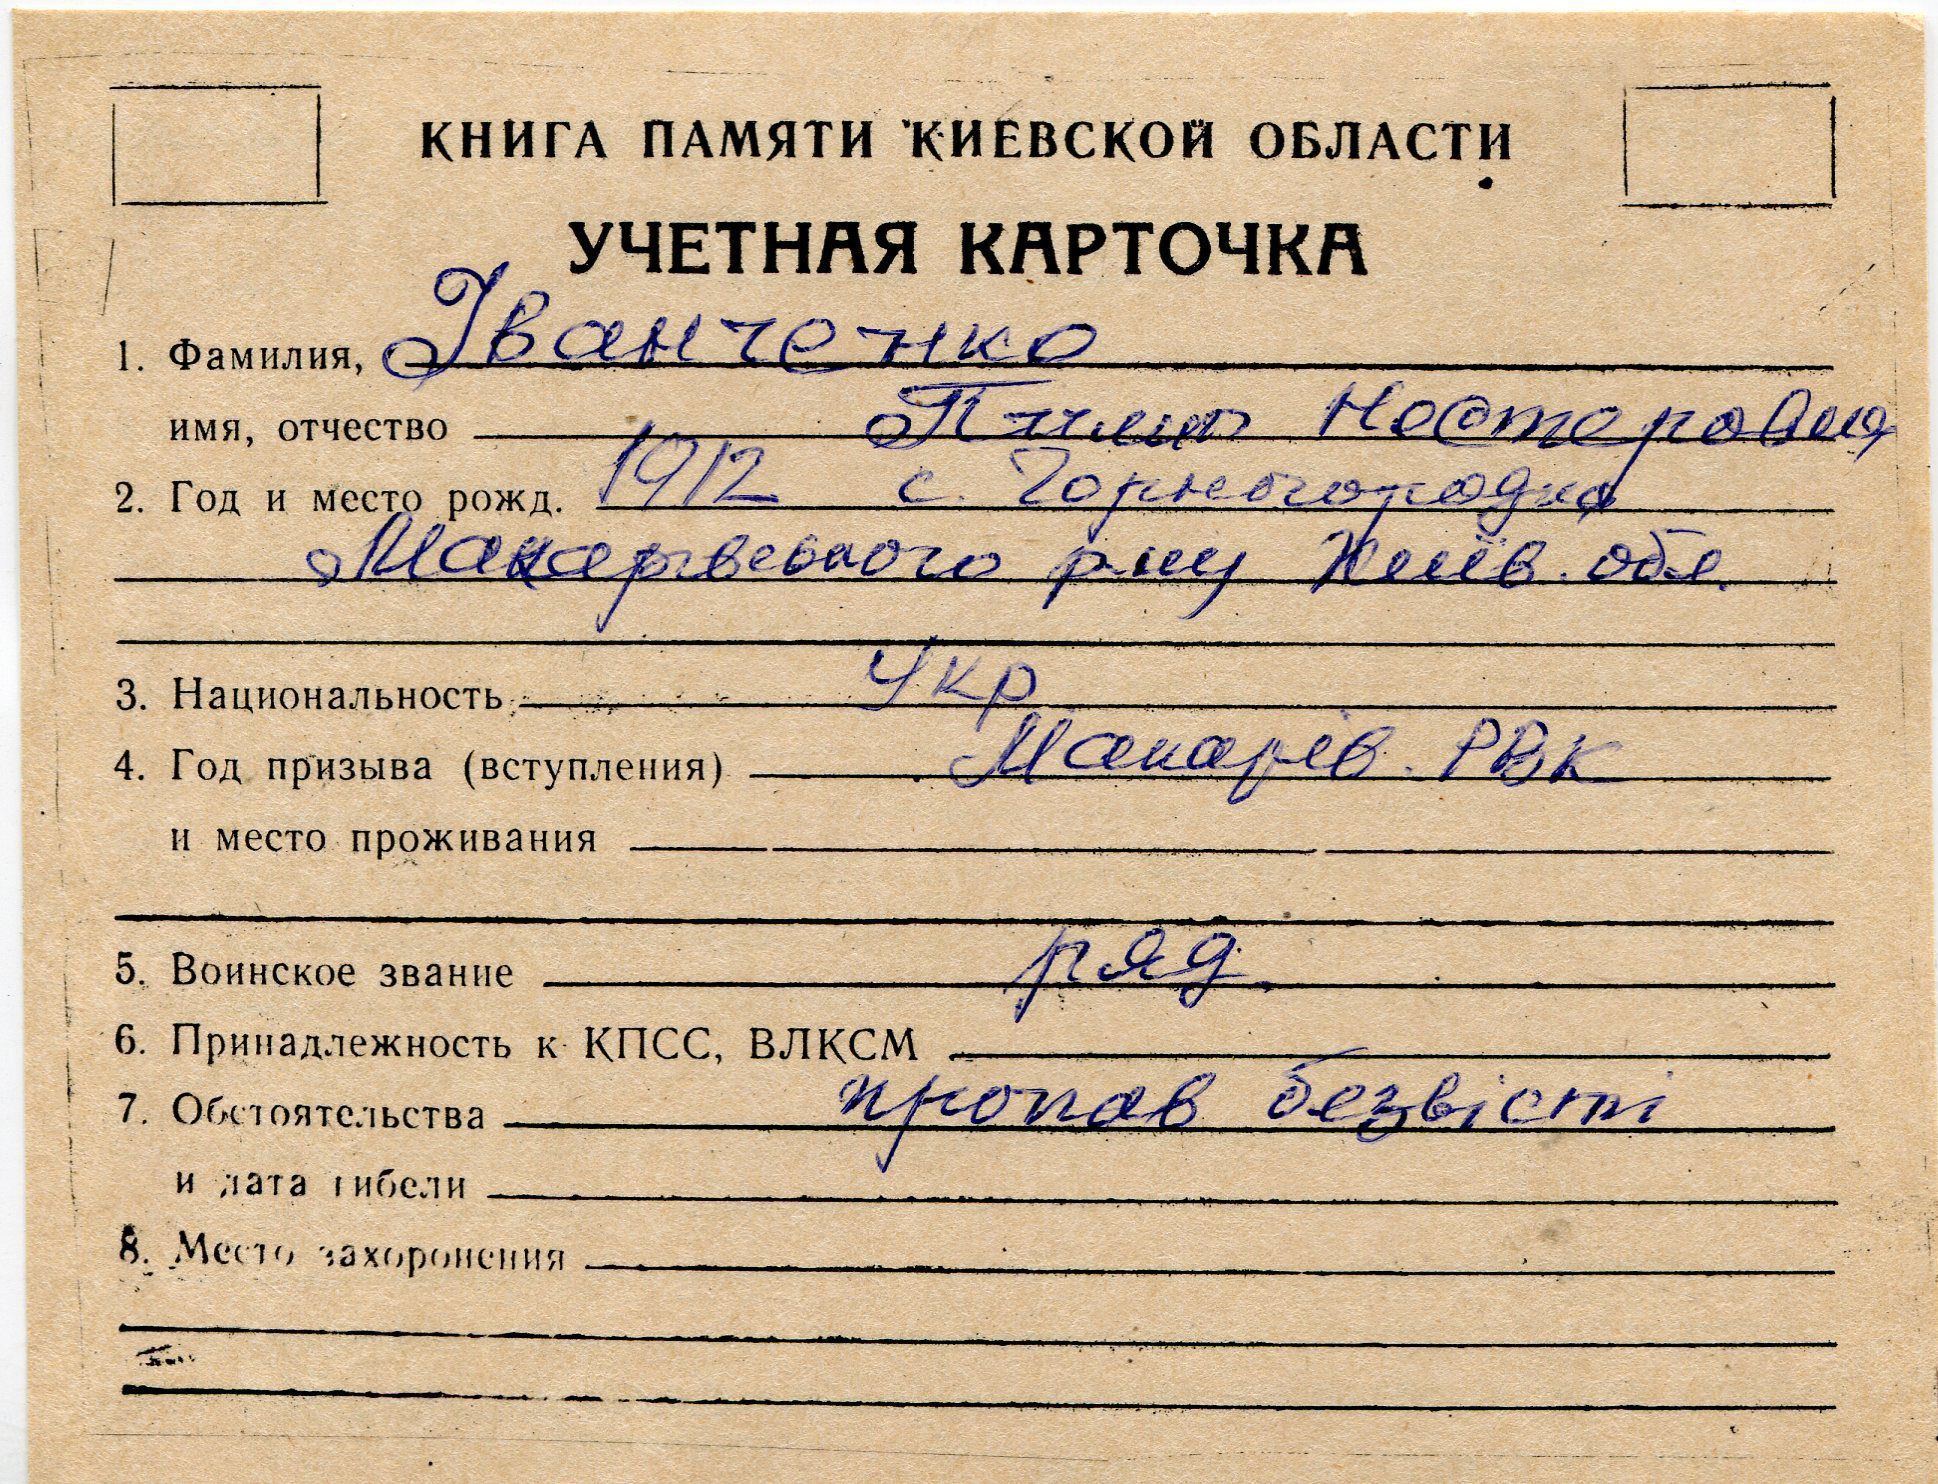 КНИГА ПАМЯТИ КИЕВСКОЙ ОБЛАСТИ
УЧЕТНАЯ КАРТОЧКА
1. Фамилия, Іванченко
имя, отчество Пилип Нестерович
2. Год и место рожд. 1912 с. Чорногородка
Макарівського р-ну Київ. обл.
3. Национальность Укр
4. Год призыва (вступления) Макарів. РВК
и место проживания
5. Воинское звание ряд.
6. Принадлежность к КПСС, ВЛКСМ
7. Обстоятельства пропав безвісті
и дата гибели
8. Место захоронения